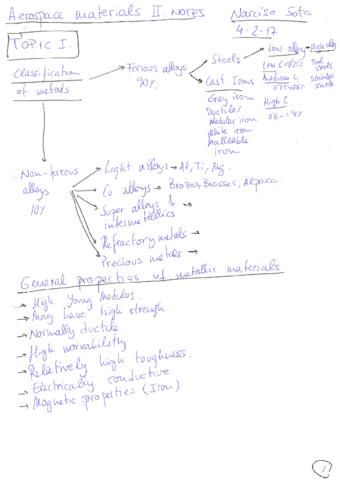 Aerospace materials II. NOTES
Narciso Sota
4-2-17
TOPIC I.
Classification
of metals
Ferrous alloys
90%
Steels
Low alloy
High alloy
Low C
Medium C
High C
0'6 - 1'4%
Tool
steels
Stainless
steels
Cast Irons
Grey iron
Ductile/
Nodular iron
White iron
Malleable
iron
Non-ferrous
alloys
10%
Light alloys → Al, Ti, Mg.
Co alloys → Brozes, Brasses, Alpaca
Super alloys &
intermetallics
Refractory metals
Precious metals
General properties of metallic materials
High Young Modulus.
May have high strength.
Normally ductile
High workability
Relatively high toughness.
Electrically conductive
Magnetic properties (Iron)
1